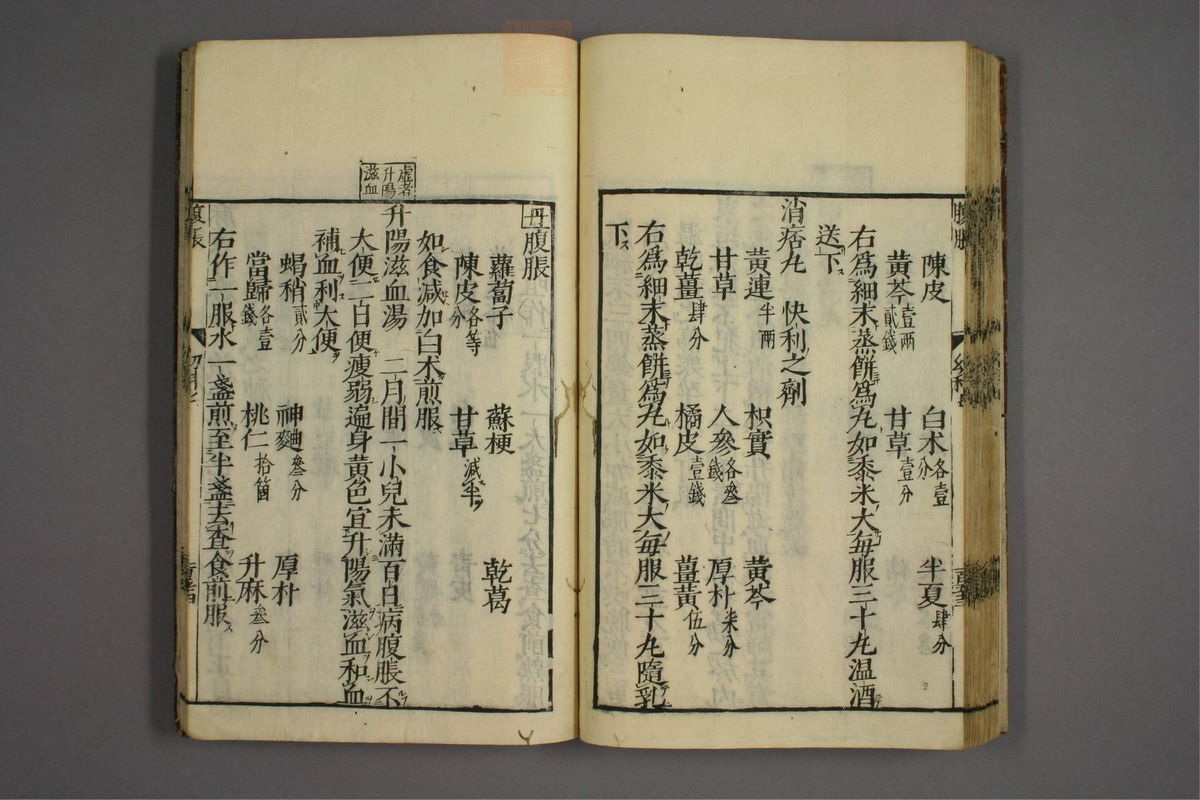 陳皮 白朮各壹分 半夏肆分
黃芩壹兩貳錢 甘草壹分
右爲細末蒸餅爲丸如黍米大每服三十丸温酒
送下
消痞丸 快利之劑
黃連半兩 枳實 黃芩
甘草 人參各叁錢 厚朴柒分
乾薑肆分 橘皮壹錢 薑黃伍分
右爲細末蒸餅爲丸如黍米大每服三十丸隨乳
下
丹腹脹
蘿蔔子 蘇梗 乾葛
陳皮各等分 甘草減半
如食減加白朮煎服
虛者升陽滋血
升陽滋血湯 二月間一小兒未滿百日病腹脹不
大便二日便瘦弱遍身黃色宜升陽氣滋血和血
補血利大便
蝎稍貳分 神麯叁分 厚朴
當歸各壹錢 桃仁拾箇 升麻叁分
右作一服水一盞煎至半盞去查食前服
腹脹